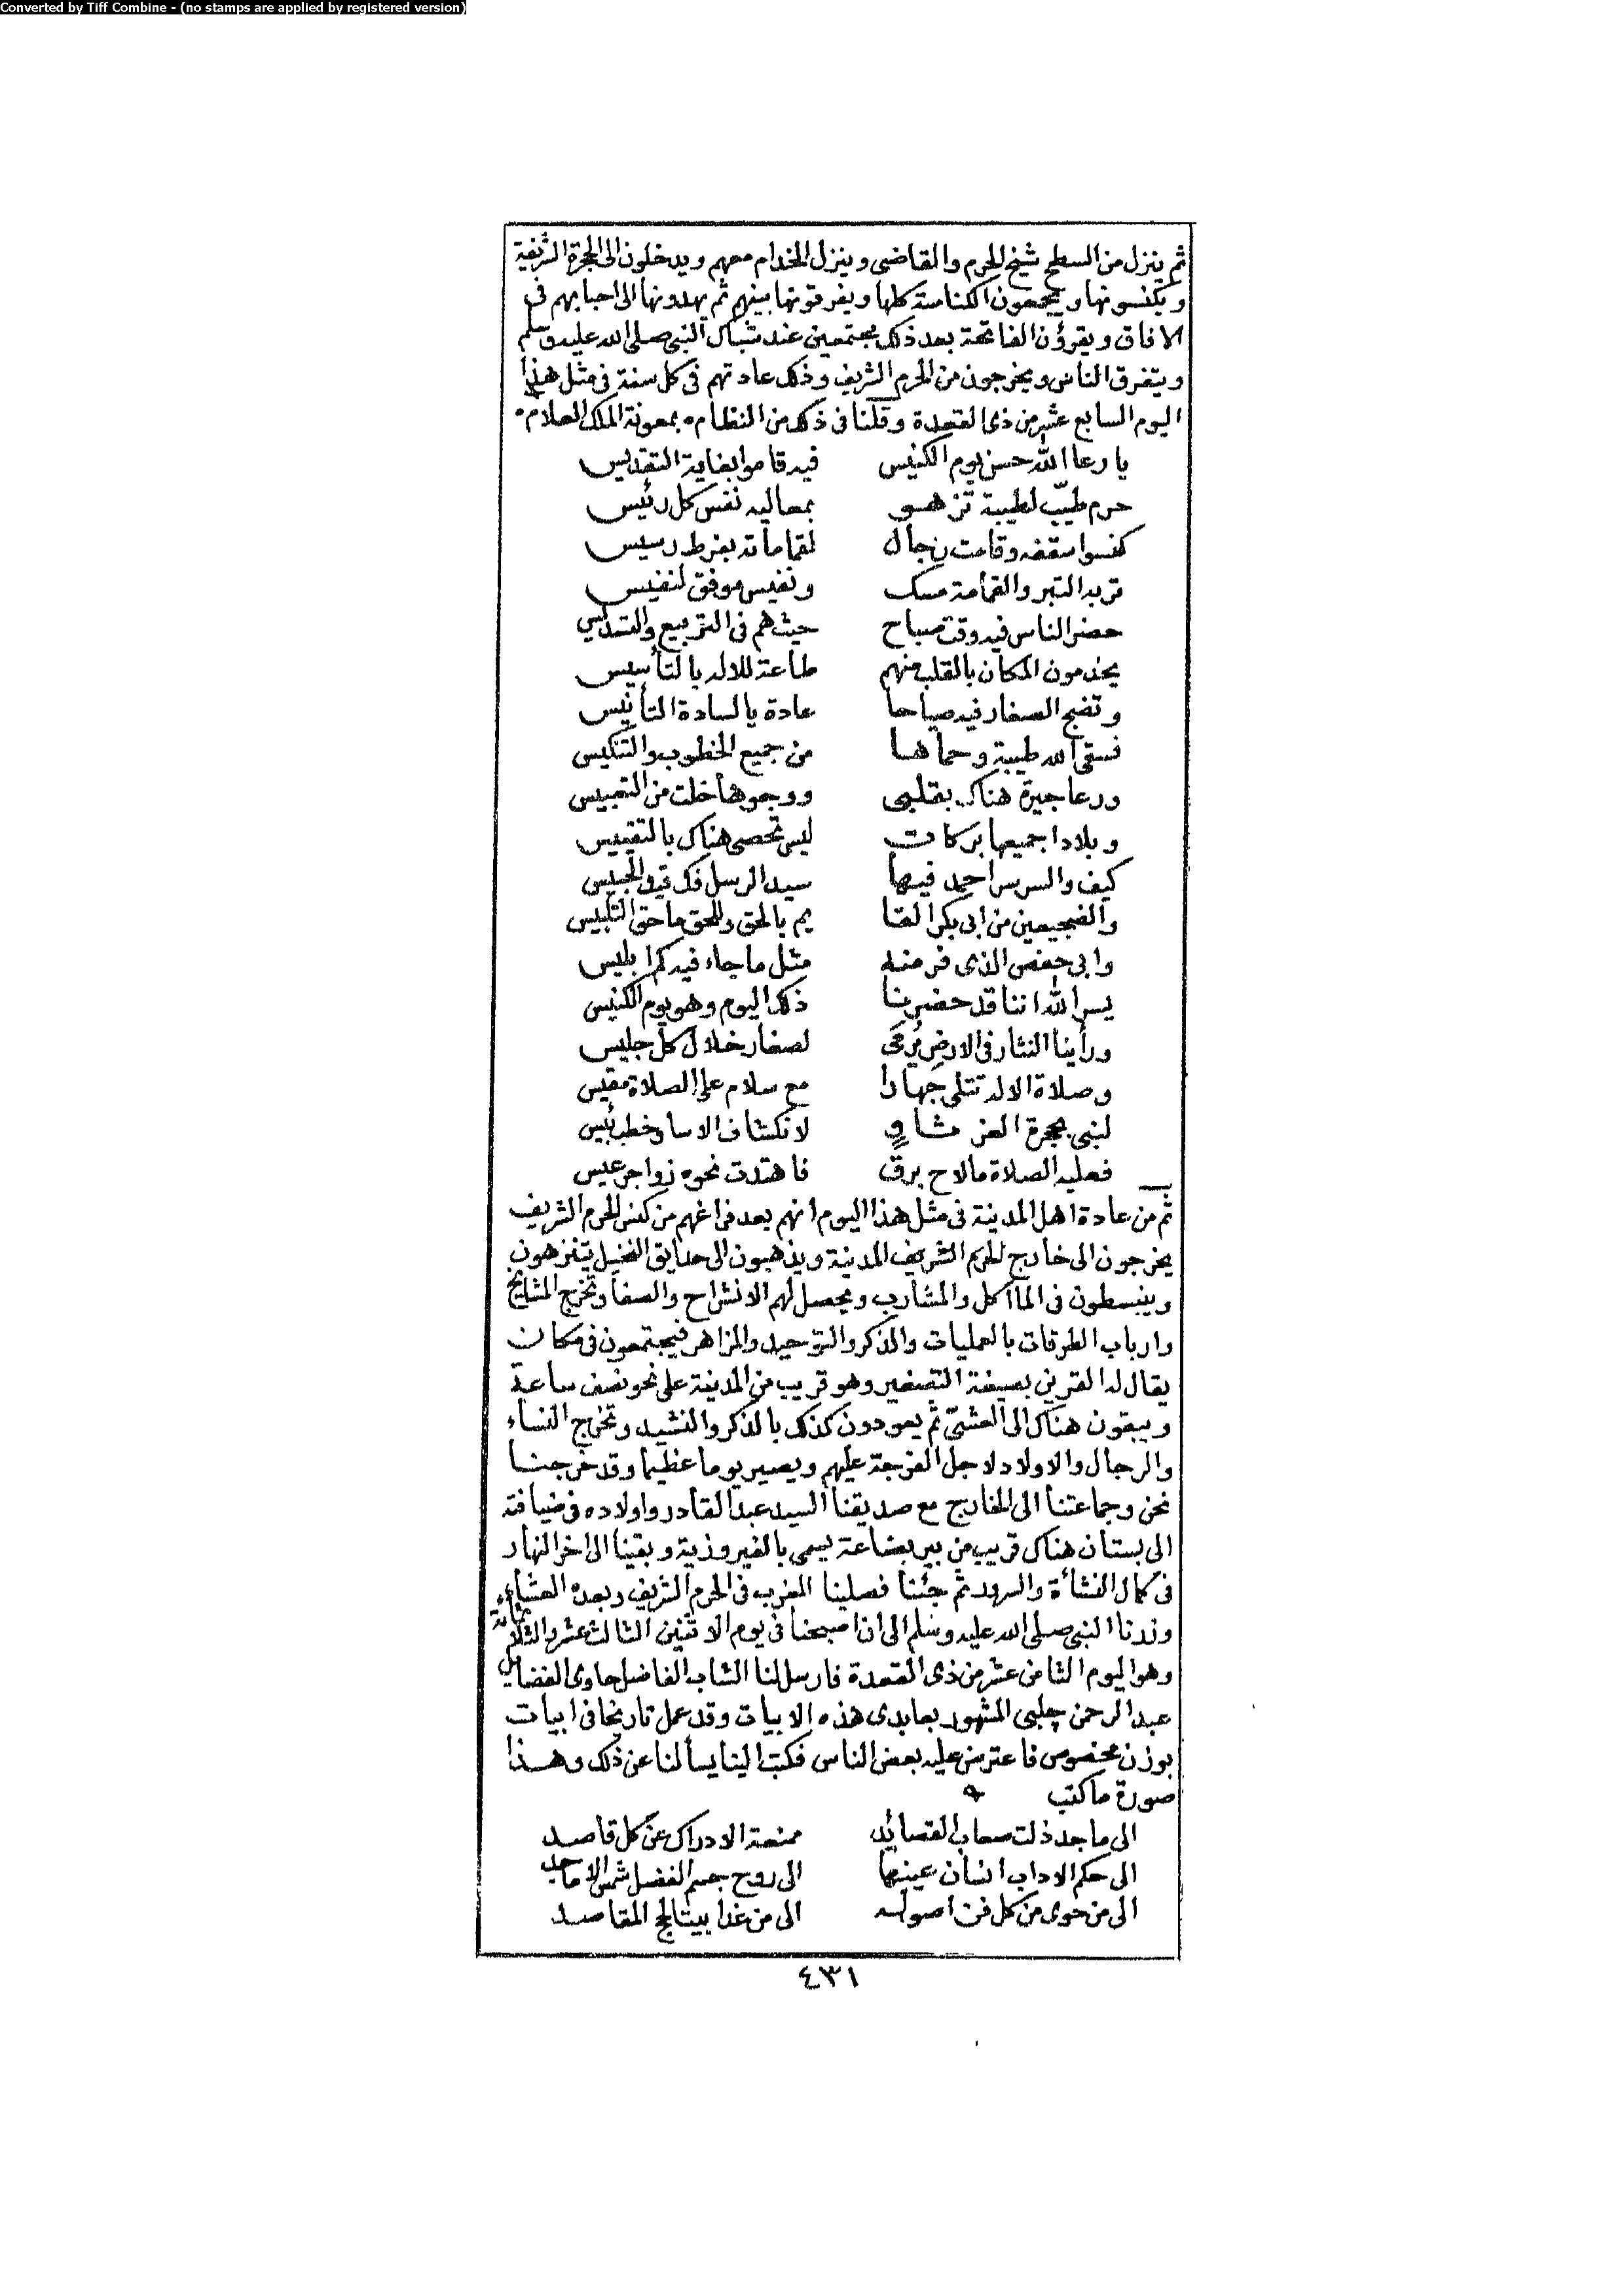 Converted by Tiff Combine - (no stamps are applied by registered version)
ثم ينزل من السطح شيخ الحرم والقاضى وينزل الخدام معهم ويدخلون الى الحجرة الشريفة
ويكنسونها ويجمعون الكناسة كلها ويفرقونها بينهم ثم يهدونها الى احبابهم فى
الافاق ويقرؤن الفاتحة بعد ذلك مجتمعين عند شباك النبى صلى الله عليه وسلم
ويتفرق الناس ويخرجون من الحرم الشريف وذلك عادتهم فى كل سنة فى مثل هذا
اليوم السابع عشر من ذى القعدة وقلنا فى ذلك من النظام بمعونة الملك العلام
يا رعا الله حسن يوم الكنيس فيه قاموا بغاية التقديس
حرم طيّب لطيبة تزهو بمعاليه نفس كل رئيس
كنسوا سقفه وقامت رجال لقماماته بفرط رسيس
تربه التبر والقمامة مسك ونفيس موفق لنفيس
حضر الناس فيه وقت صباح حيث هم فى التربيع والتسديس
يخدمون المكان بالقلب منهم طاعة للاله بالتأسيس
وتضج الصغار فيه صياحا عادة يالسادة التأنيس
فسقى الله طيبة وحماها من جميع الخطوب والتنكيس
ورعا جيرة هناك بقلبى ووجوها خلت من التعبيس
وبلادا جميعها بركات ليس تحصى هناك بالتقييس
كيف والسر سر احمد فيها سيد الرسل فك قيد الحبيس
والضجيعين من ابى بكر القا يم بالحق وللحق ماحق التلبيس
وابى حفص الذى فر منه مثل ما جاء فيه كم ابليس
يسر الله اننا قد حضرنا ذلك اليوم وهو يوم الكنيس
ورأينا النثار فى الارض يُرمَى لصغار خلال كل جليس
وصلاة الاله تتلى جهارا مع سلام على الصلاة مقيس
لنبى بحجرة العز ثاوٍ لانكشاف الاسا وخطب بئيس
فعليه الصلاة ما لاح برق فاهتدت نحوه زواجر عيس
ثم من عادة اهل المدينة فى مثل هذا اليوم انهم بعد فراغهم من كنس الحرم الشريف
يخرجون الى خارج الحرم الشريف المدينة ويذهبون الى حدايق النخيل يتنزهون
وينبسطون فى المأكل والمشارب ويحصل لهم الانشراح والصفا وتخرج المشايخ
وارباب الطرقات بالعمليات والذكر والتوحيد والمزاهر فيجتمعون فى مكان
يقال له القرين بصيغة التصغير وهو قريب من المدينة على نحو نصف ساعة
ويبقون هناك الى العشىّ ثم يعودون كذلك بالذكر والنشيد وتخرج النساء
والرجال والاولاد لاجل الفرجة عليهم ويصير يوما عظيما وقد خرجنا
نحن وجماعتنا الى الخارج مع صديقنا السيد عبد القادر واولاده فى ضيافة
الى بستان هناك قريب من بير بضاعة يسمى بالفيروزية وبقينا الى اخر النهار
فى كمال النشأة والسرور ثم جئنا فصلينا المغرب فى الحرم الشريف وبعده العشاء
وزرنا النبى صلى الله عليه وسلم الى ان اصبحنا فى يوم الاثنين الثالث عشر والثلاثمائة
وهو اليوم الثامن عشر من ذى القعدة فارسل لنا الشاب الفاضل حاوى الفضايل
عبد الرحمن چلبى المشهور بعابدى هذه الابيات وقد عمل تاريخا فى ابيات
بوزن مخصوص فاعترض عليه بعض الناس فكتب الينا يسألنا عن ذلك وهذا
صورة ما كتب
الى ماجد ذلت صعاب القصائد ممنعة الادراك عن كل قاصد
الى حكم الاداب انسان عينها الى روح جسم الفضل شمس الاماجد
الى من حوى من كل فن اصوله الى من غدا بيتا لحج المقاصد
٤٣١